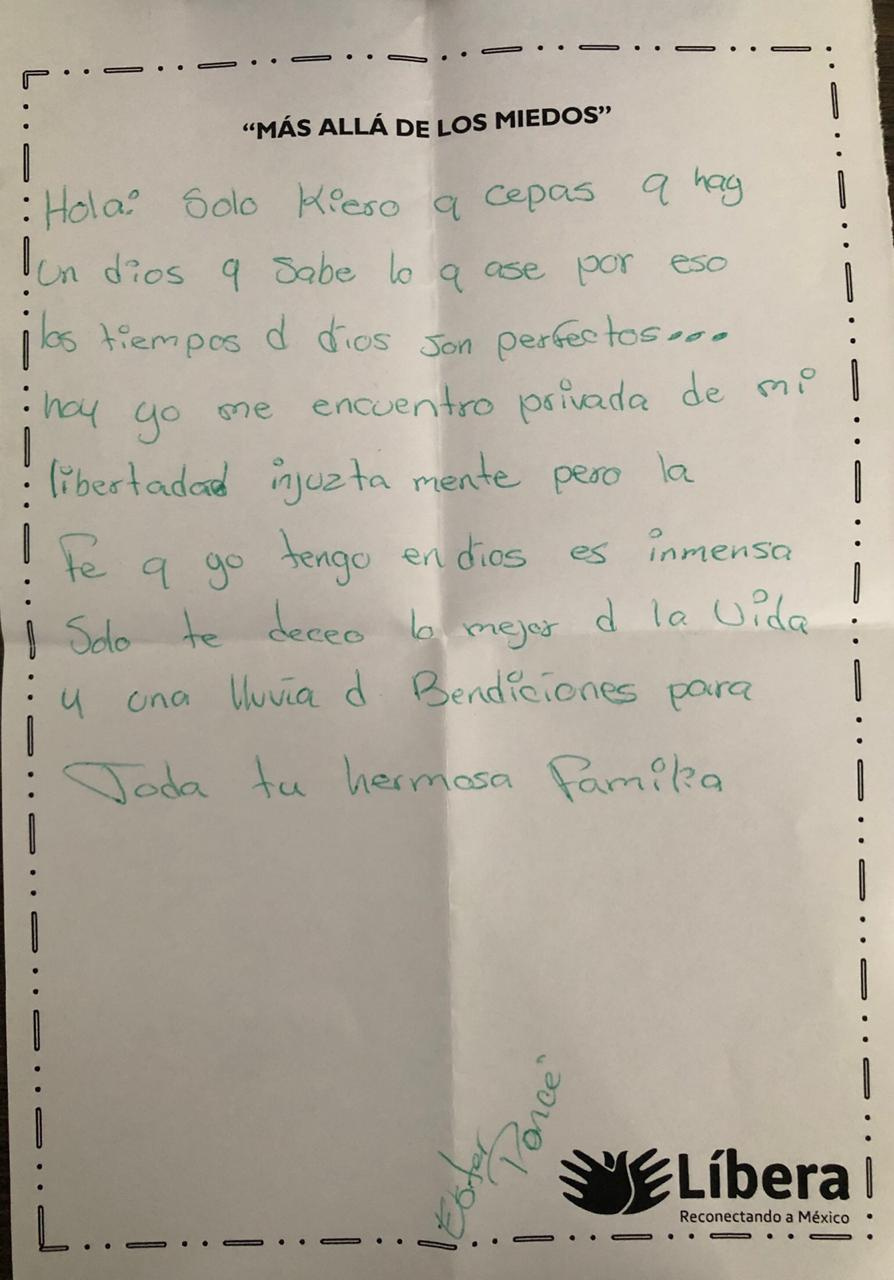 “MÁS ALLÁ DE LOS MIEDOS”
Hola: Solo Kieso q cepas q hay
un dios q sabe lo q ase por eso
los tiempos d dios son perfectos....
hoy yo me encuentro privada de mi
libertadad injuzta mente pero la
Fe q yo tengo en dios es inmensa
Solo te deceo lo mejor d la Vida
y una lluvia d Bendiciones para
Toda tu hermosa Familia
Ester
Ponce
Líbera
Reconectando a México